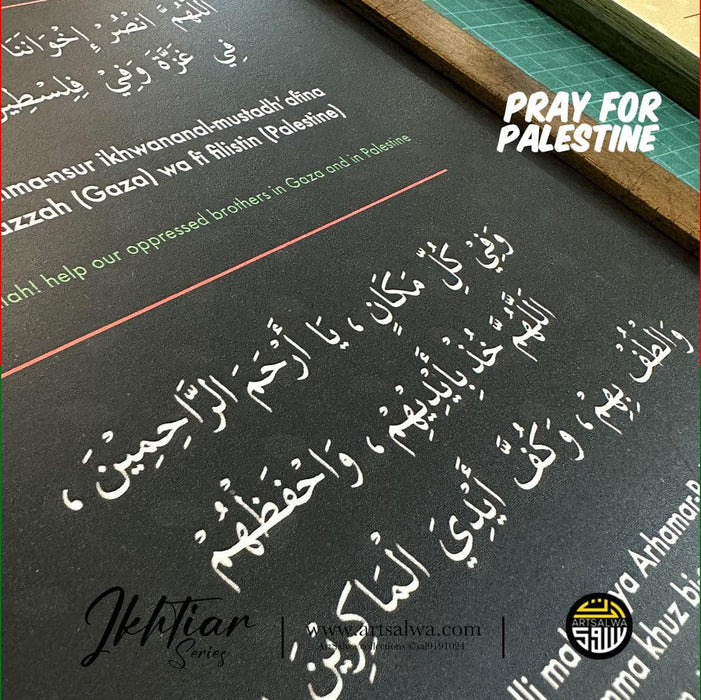 اللَّهُمَّ انْصُرْ إِخْوَانَنَا
فِي غَزَّةَ وَفِيْ فِلِسْطِيْن
PRAY FOR
PALESTINE
mma-nsur ikhwananal-mustadh'afina
azzah (Gaza) wa fi filistin (Palestine)
lah! help our oppressed brothers in Gaza and in Palestine
وَفِيْ كُلِّ مَكَانٍ ، يَا أَرْحَمَ الرَّاحِمِيْنَ ،
اللَّهُمَّ خُذْ بِأَيْدِيْهِمْ ، وَاحْفَظْهُمْ
وَالْطُفْ بِهِمْ ، وَكُفَّ أَيْدِيَ الْمَاكِرِيْنَ
lli ma ya Arhamar-R
mma khuz bi
Ikhtiar
Series
www.artsalwa.com
ArtSalwa Collections ©saf9191024
ARTSALWA